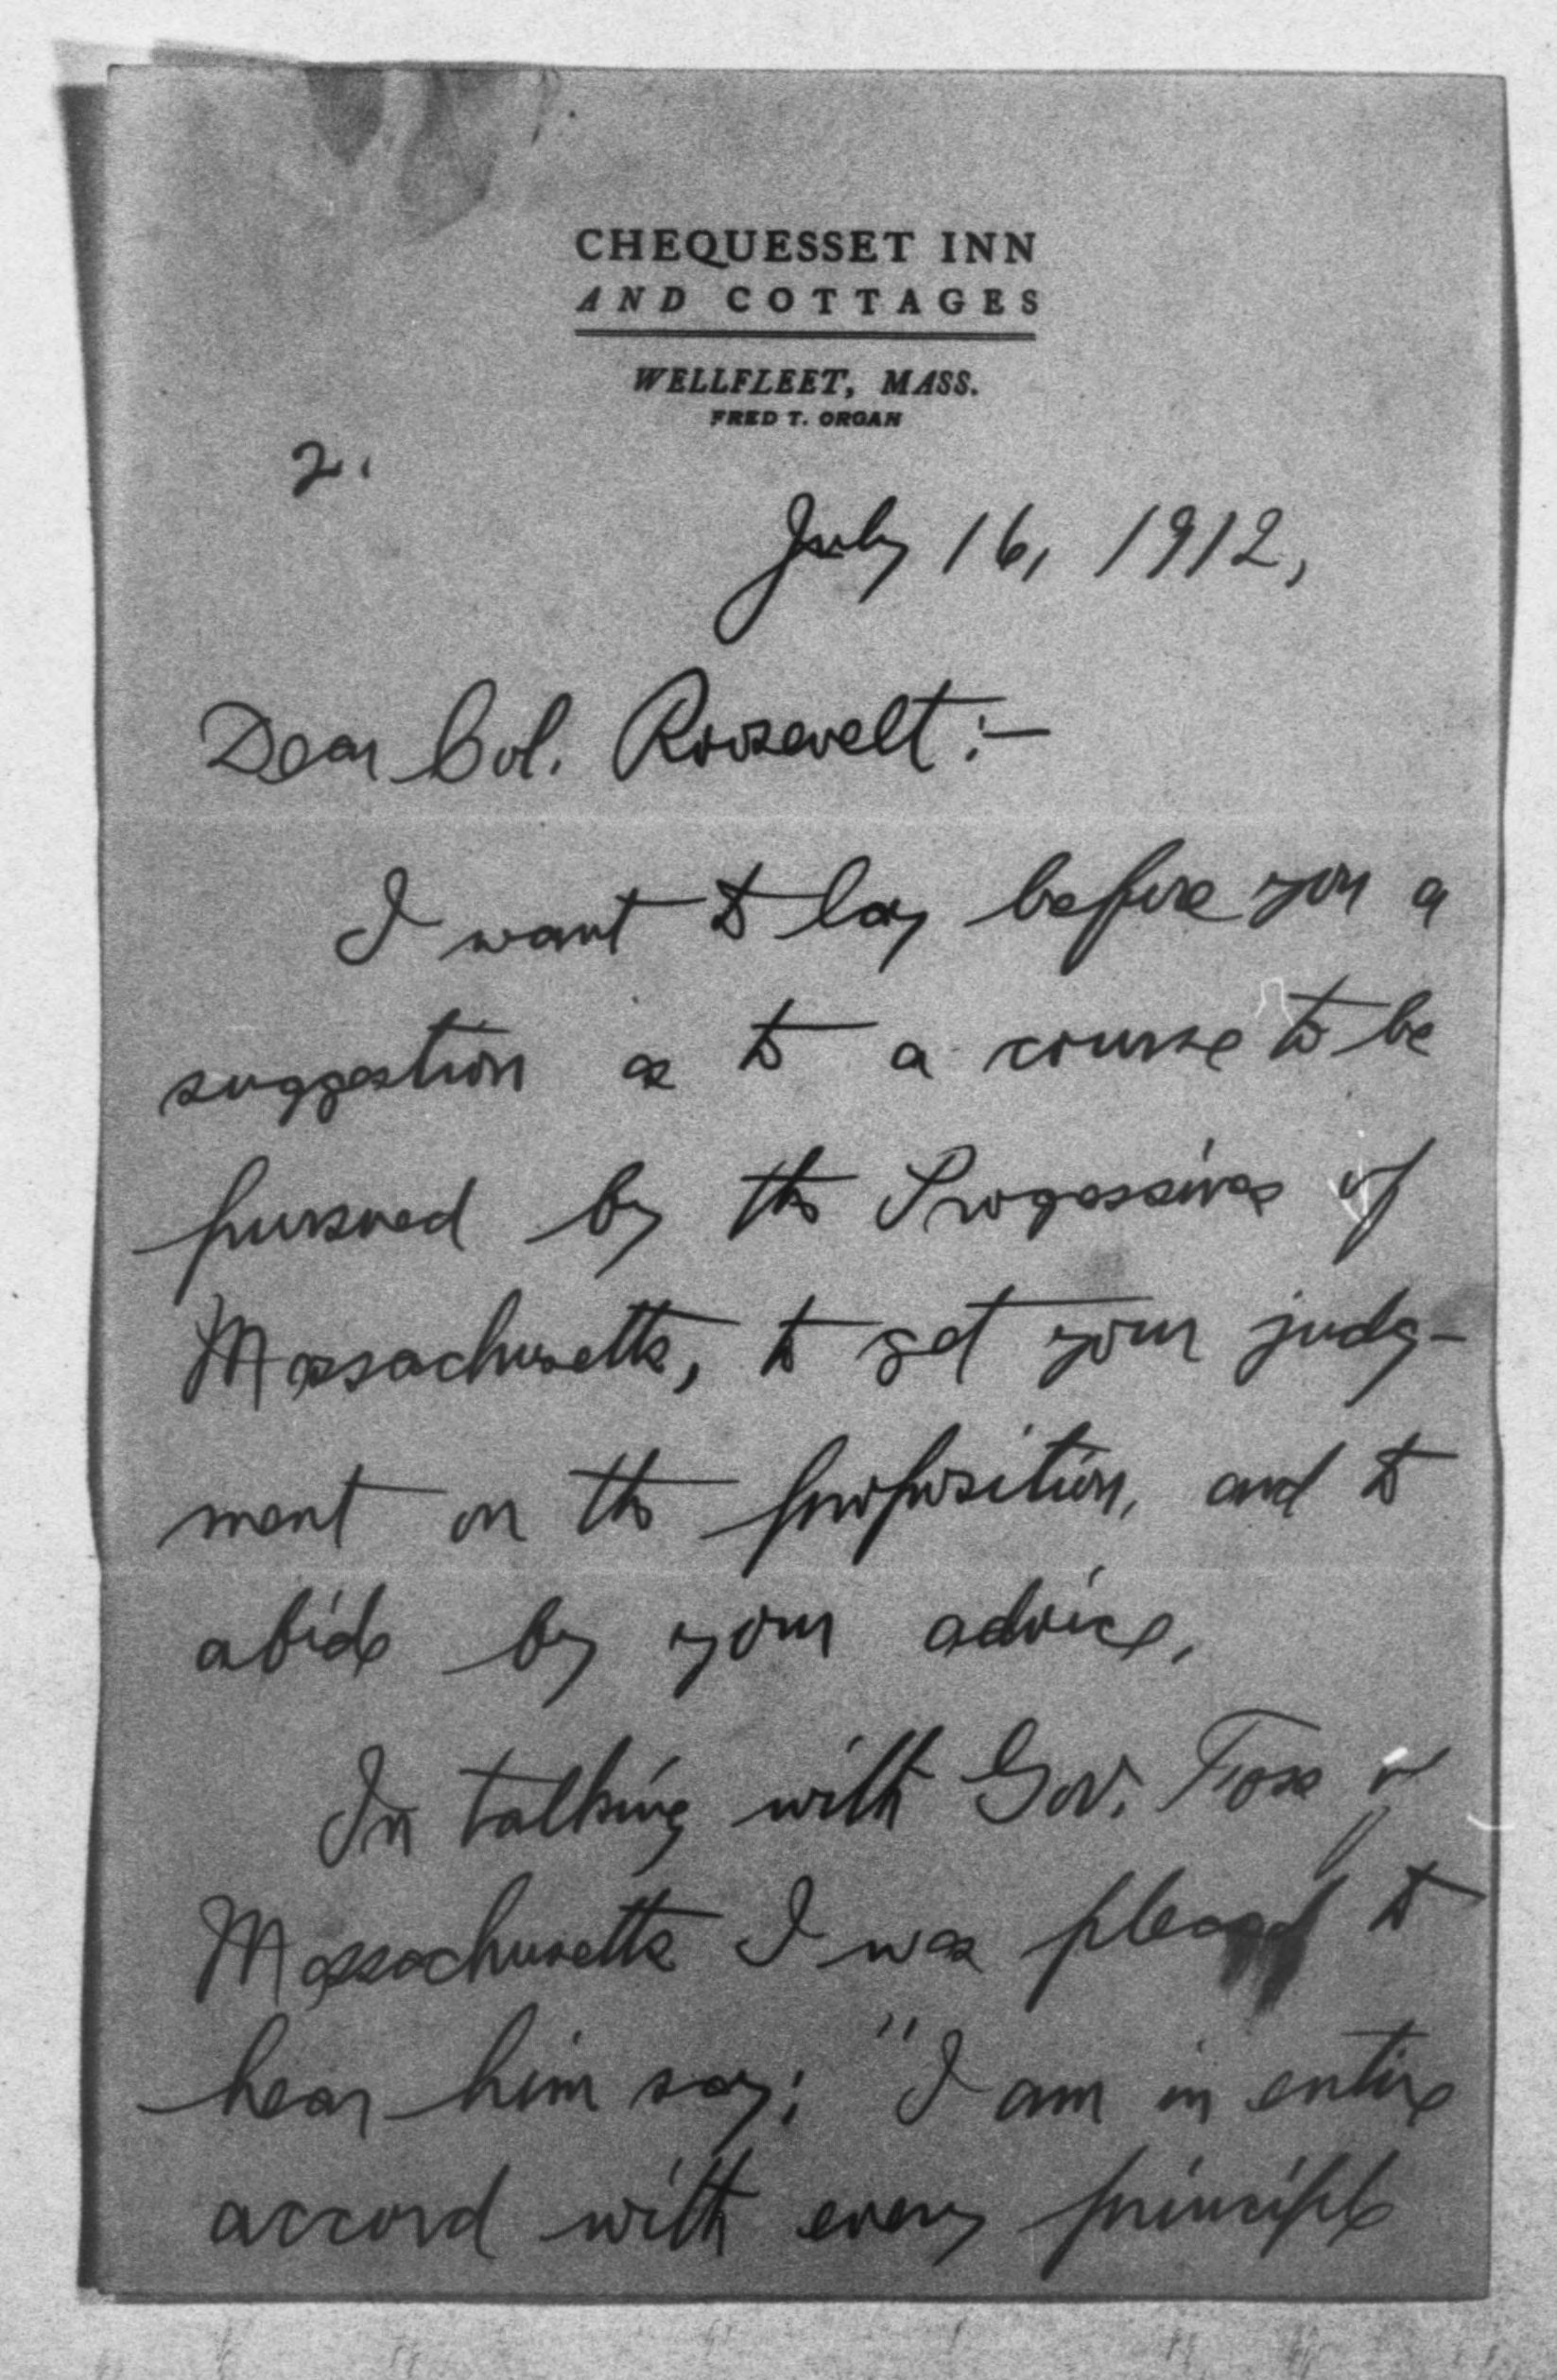 CHEQUESSET INN
AND COTTAGES
WELLFLEET, MASS.
FRED T. ORGAN
2.
July 16, 1912,
Dear Col. Roosevelt:—
I want to lay before you a
suggestion as to a course to be
pursued by the Progessives of
Massachusetts, to get your judg-
ment on the proposition, and to
abide by your advice.
In talking with Gov. Foss of
Massachusetts I was pleased to
hear him say; "I am in entire
accord with every principle